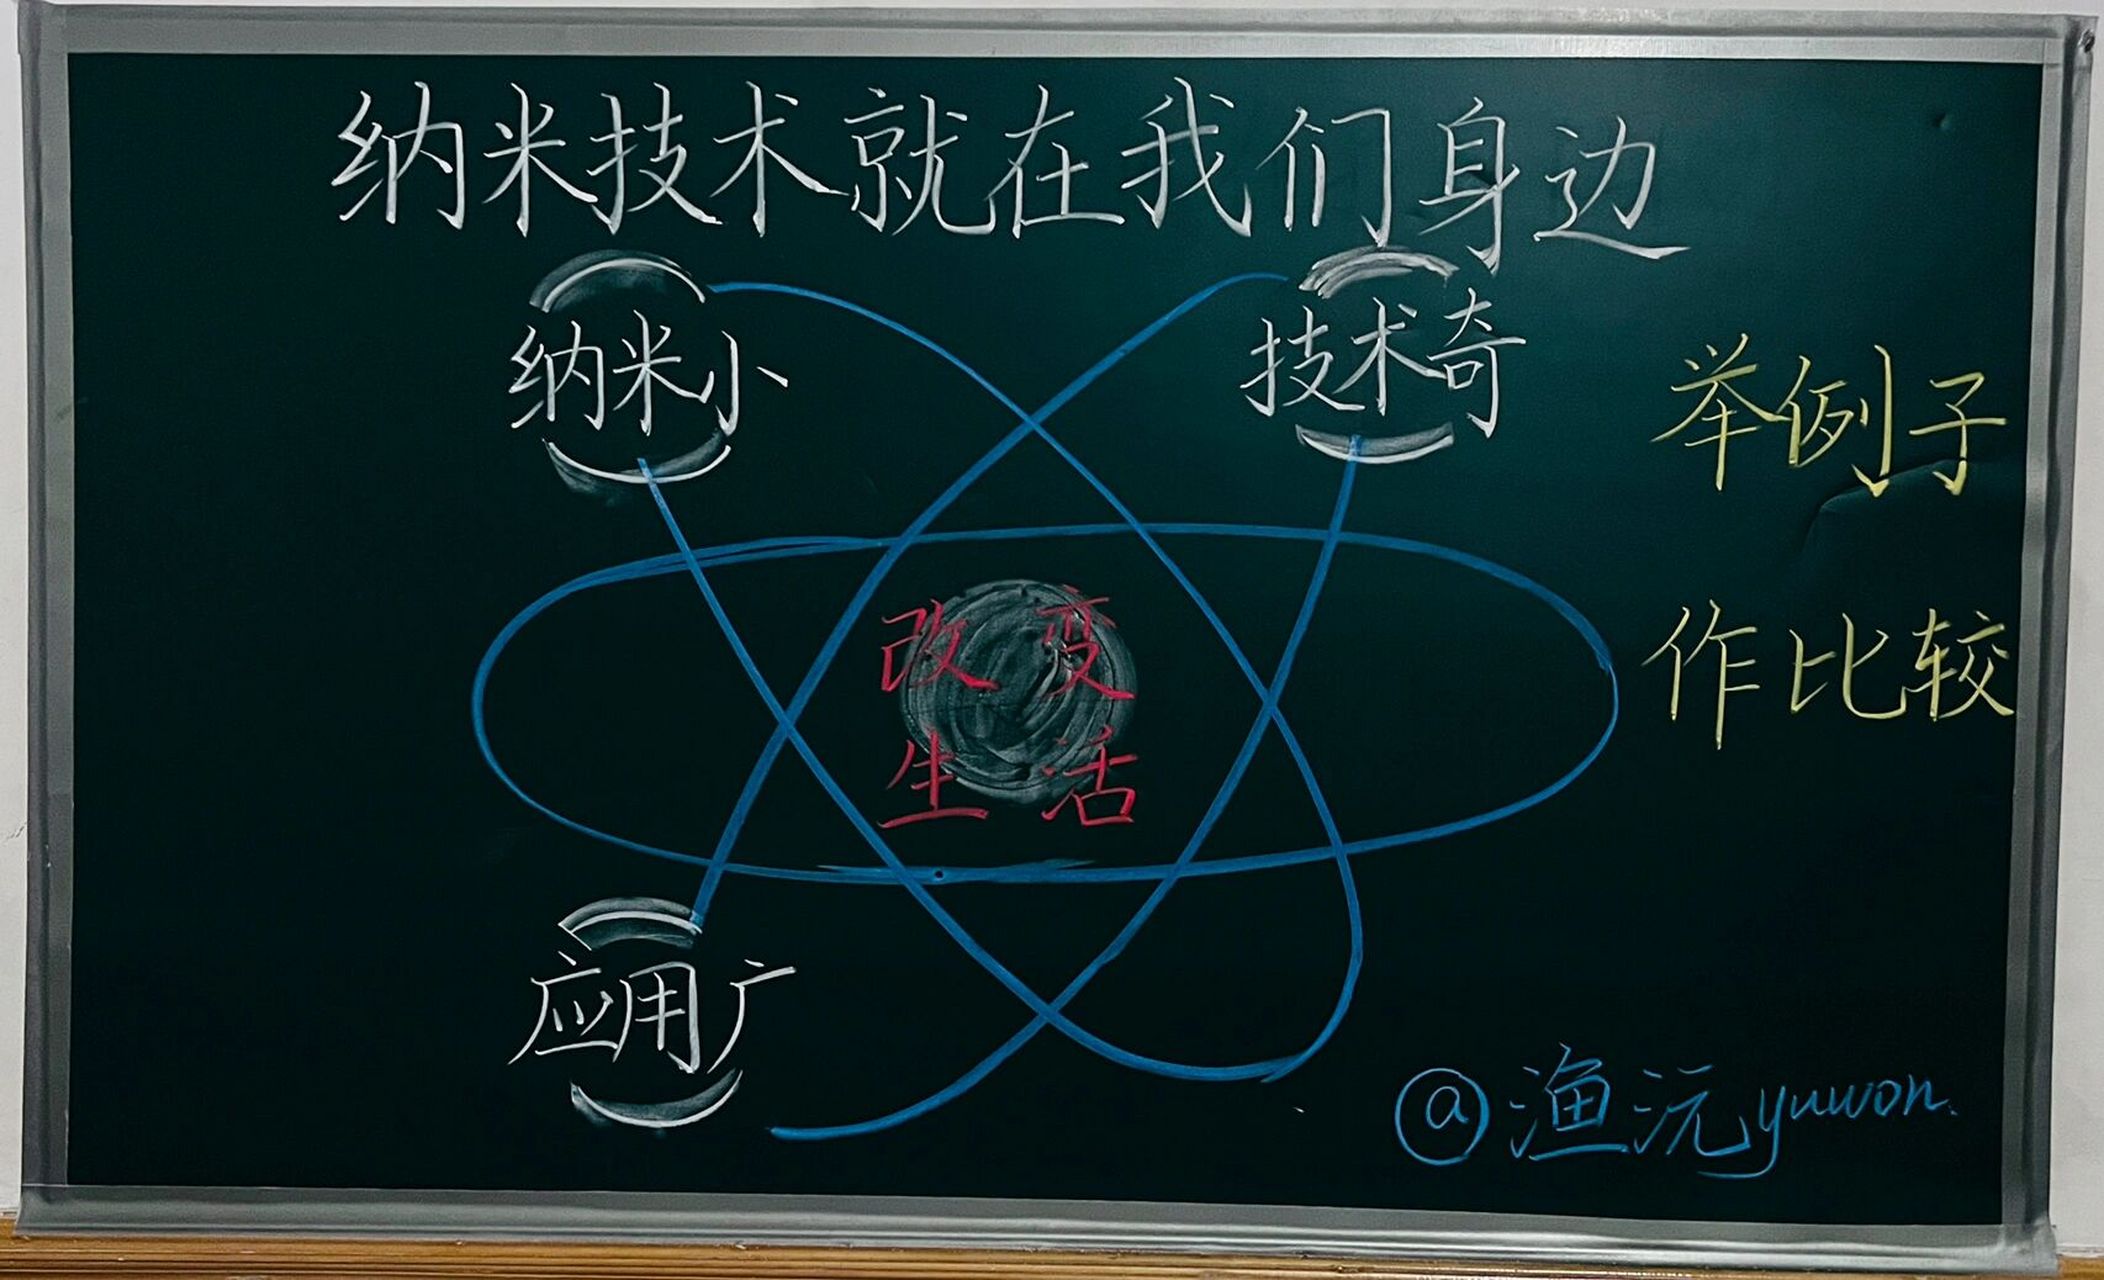 纳米技术就在我们身边
纳米小
技术奇
举例子
改变
生活
作比较
应用广
@渔沅yuwon.